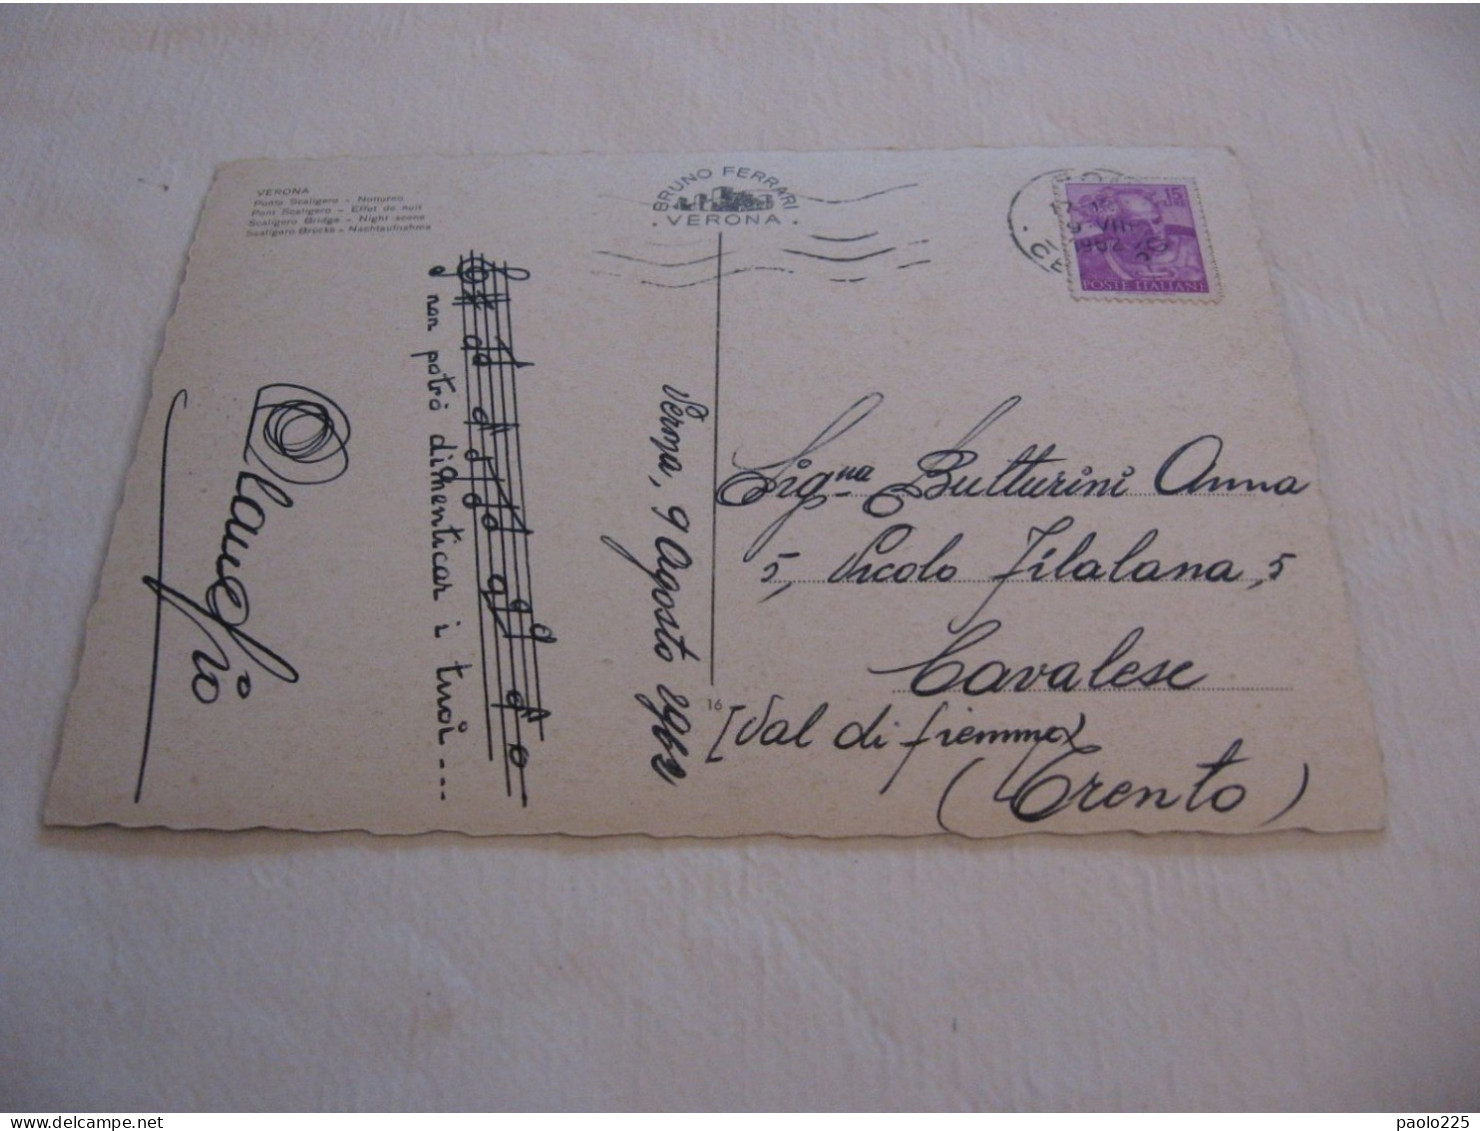 VERONA
Ponte Scaligero - Notturno
Pont Scaligero - Effet de nuit
Scaligero Bridge - Night scene
Scaligero Brücke - Nachtaufnahme
BRUNO FERRARI
. VERONA .
15
POSTE ITALIANE
non potrò dimenticar i tuoi ...
Claudio
Verona, 9 Agosto 1962
16
Sig.na Butturini Anna
5, Vicolo Filatana, 5
Cavalese
[Val di fiemme]
(Trento)
paolo225
delcampe.net